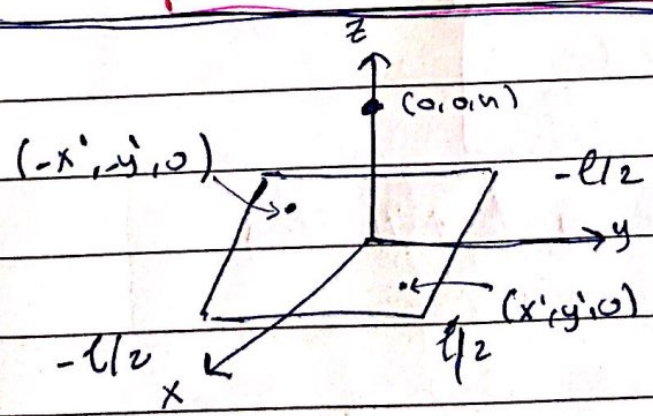 z
(0,0,h)
(-x',-y',0)
-l/2
y
(x',y',0)
-l/2
l/2
x